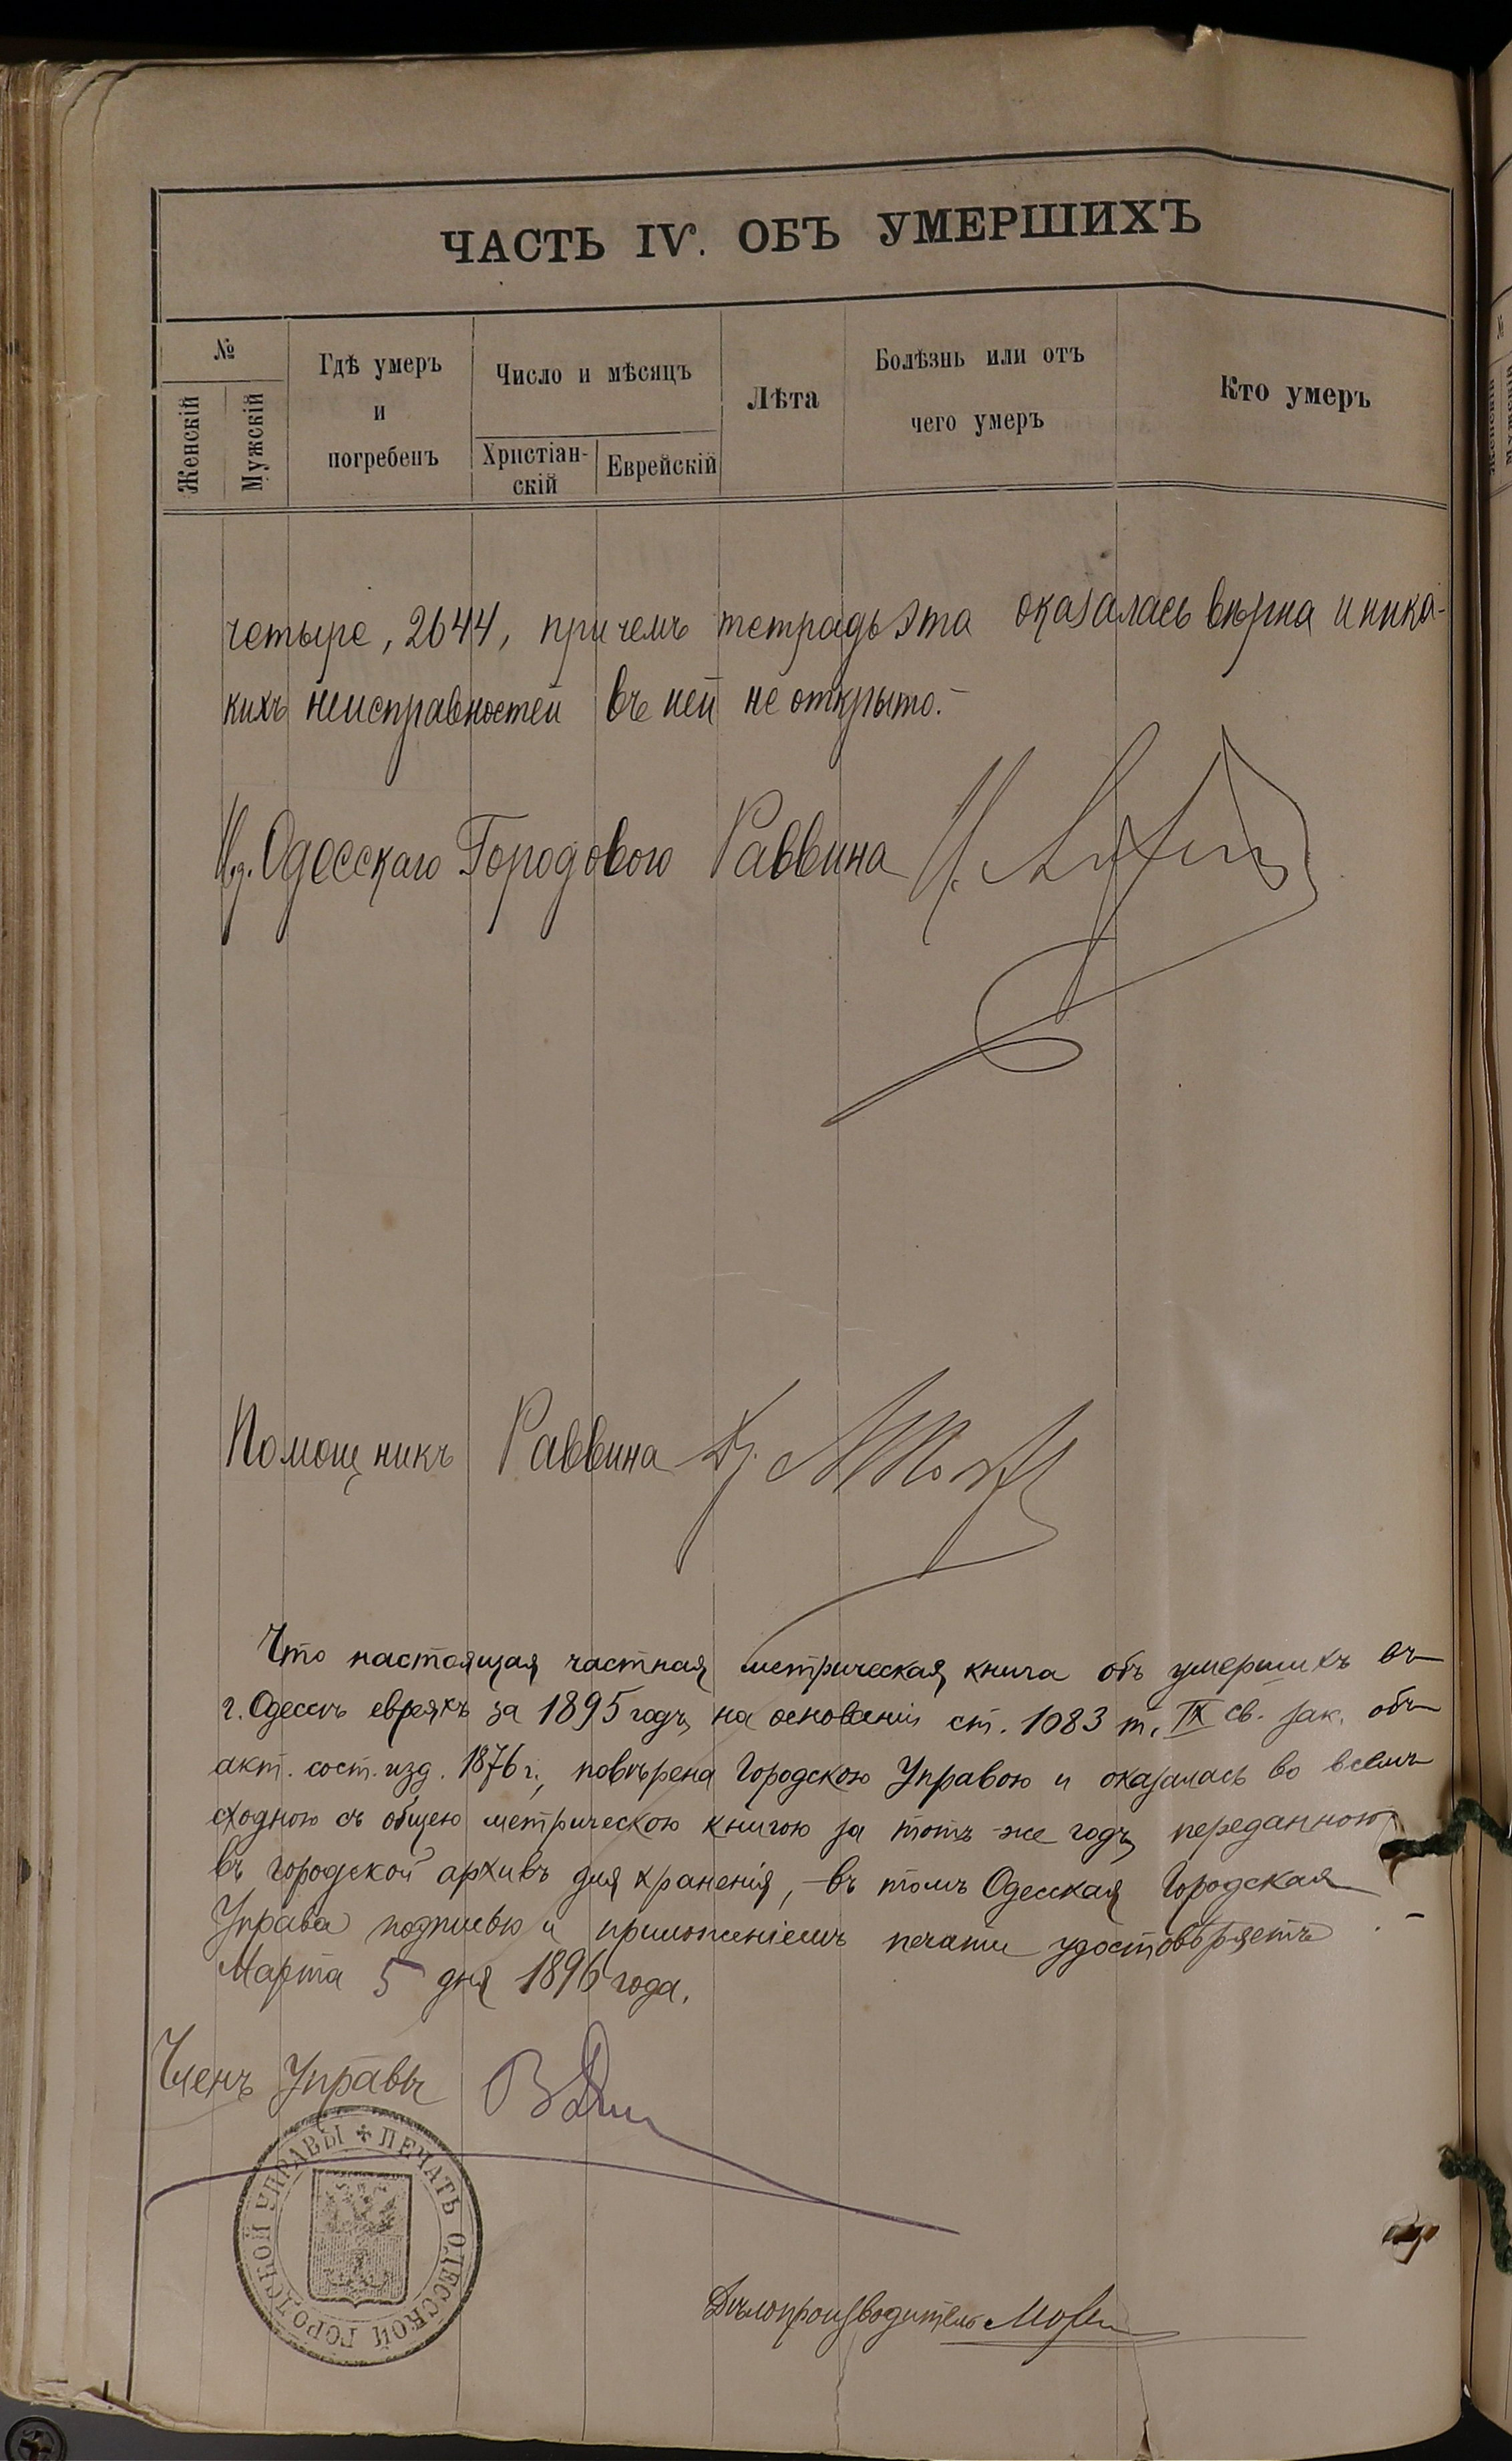 ЧАСТЬ IV. ОБЪ УМЕРШИХЪ
№
Женскій
Мужскій
Гдѣ умеръ
и
погребенъ
Число и мѣсяцъ
Христіан-
скій
Еврейскій
Лѣта
Болѣзнь или отъ
чего умеръ
Кто умеръ
четыре, 2644, при чемъ тетрадь эта оказалась вѣрна и ника-
кихъ неисправностей въ ней не открыто.-
Одесскаго Городового Раввина
Помощникъ Раввина
Что настоящая частная метрическая книга объ умершихъ въ
г. Одессѣ евреяхъ за 1895 годъ, на основаніи ст. 1083 т. IX св. зак. объ
акт. сост. изд. 1876 г., повѣрена Городскою Управою и оказалась во всемъ
сходною съ общею метрическою книгою за тотъ-же годъ, переданною
въ городской архивъ для храненія, - въ томъ Одесская Городская
Управа подписью и приложеніемъ печати удостовѣряетъ. -
Марта 5 дня 1896 года.
Членъ Управы
ПЕЧАТЬ ОДЕССКОЙ ГОРОДСКОЙ УПРАВЫ
Дѣлопроизводитель